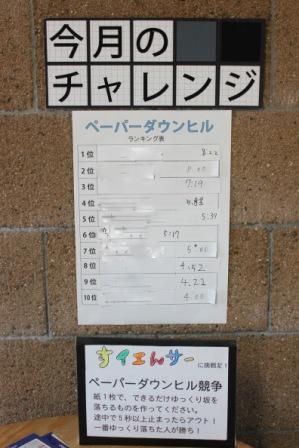 今月の
チャレンジ
ペーパーダウンヒル
ランキング表
1位 8:22
2位 8:00
3位 7:19
4位
5位 5:39
6位 5:17
7位 5:00
8位 4:52
9位 4.22
10位 4:00
すイエんサーに挑戦だ！
ペーパーダウンヒル競争
紙1枚で、できるだけゆっくり坂を
落ちるものを作ってください。
途中で5秒以上止まったらアウト！
一番ゆっくり落ちた人が勝ち！